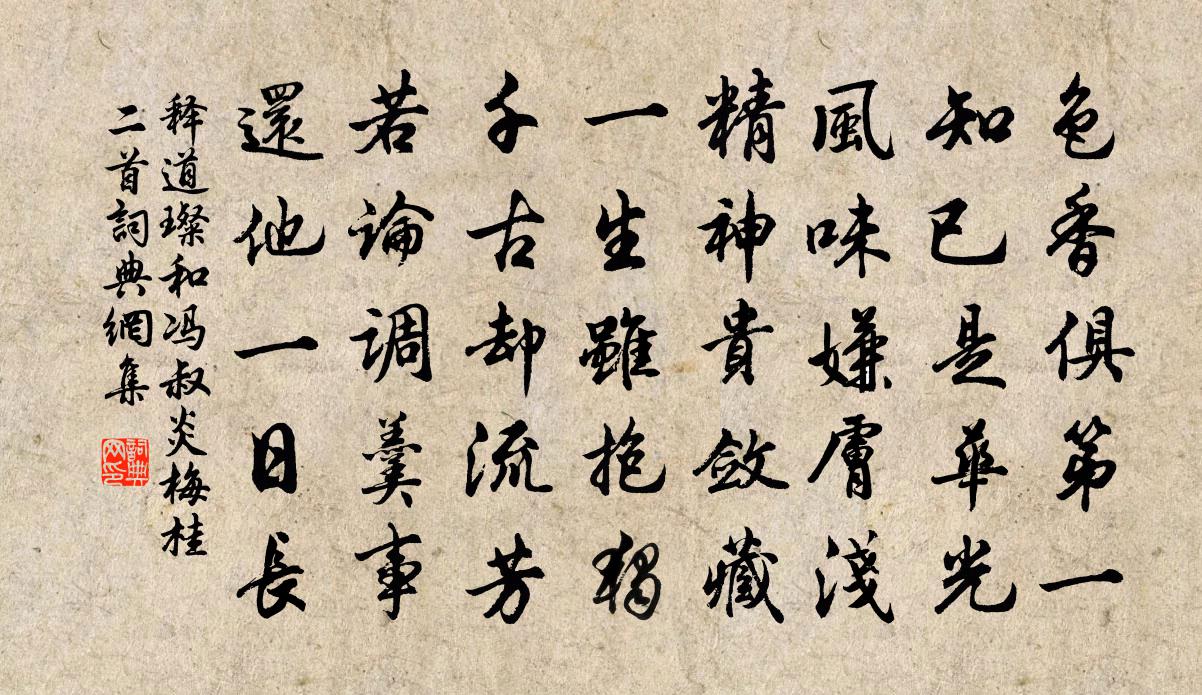 色香俱第一
知已是華光
風味嫌膚淺
精神貴斂藏
一生雖抱獨
千古却流芳
若論調羹事
還他一日長
释道璨和冯叔炎梅桂
二首詞典網集
詞典网印